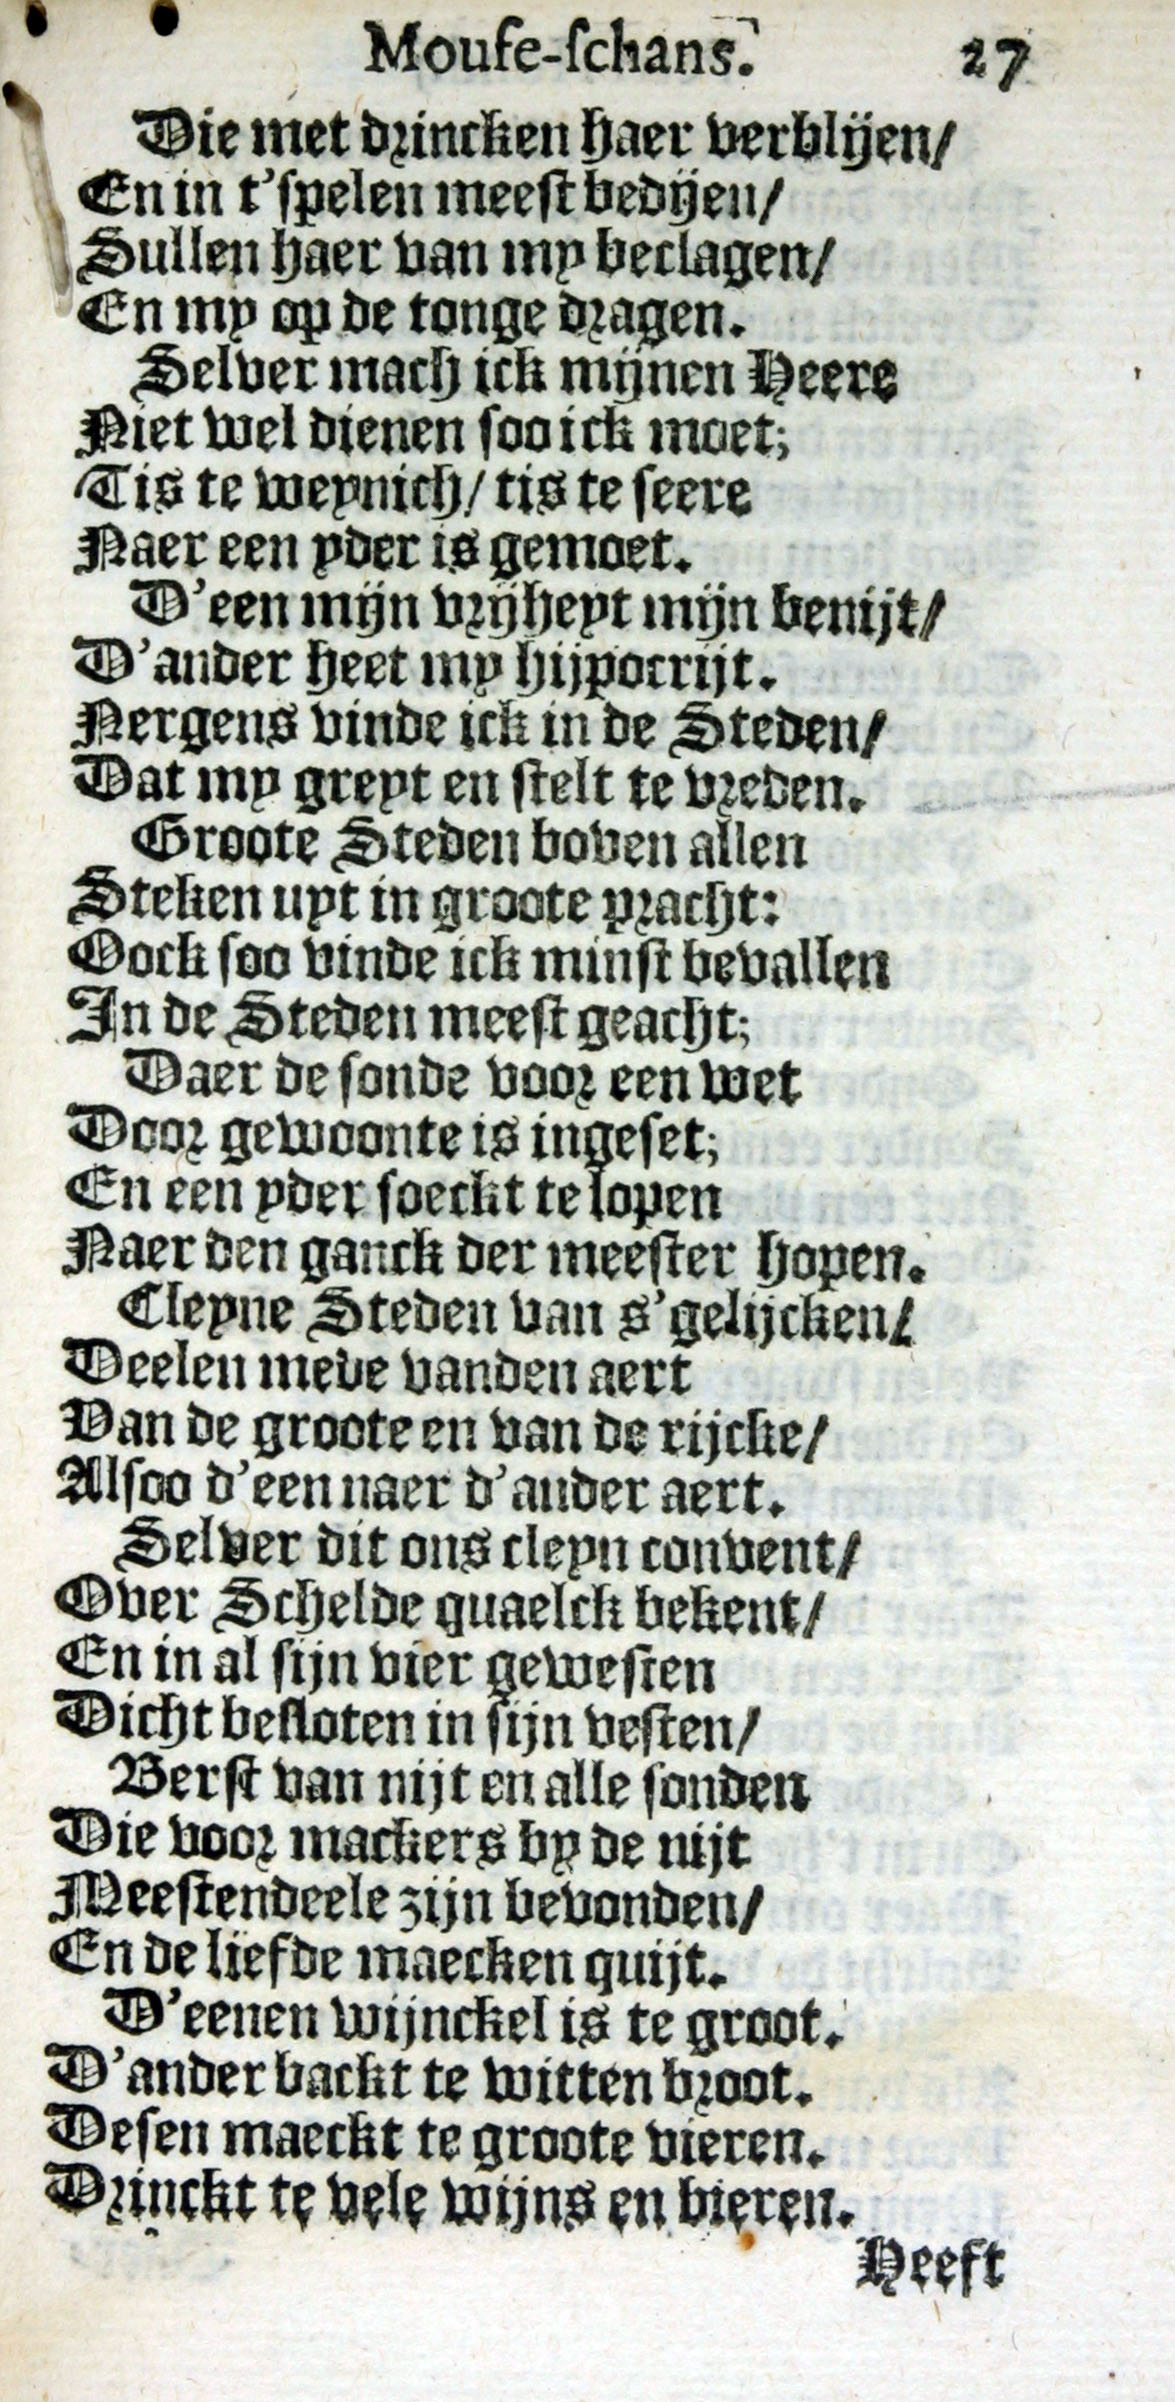 Mouſe-ſchans. 27
Die met drincken haer verblijen/
En in t'ſpelen meeſt bedijen/
Sullen haer van my beclagen/
En my op de tonge dragen.
Selver mach ick mijnen Heere
Niet wel dienen ſoo ick moet;
Tis te weynich/ tis te ſeere
Naer een yder is gemoet.
D'een mijn vrijheyt mijn benijt/
D'ander heet my hijpocrijt.
Nergens vinde ick in de Steden/
Dat my greyt en ſtelt te vreden.
Groote Steden boven allen
Steken uyt in groote pracht:
Oock ſoo vinde ick minſt bevallen
In de Steden meeſt geacht;
Daer de ſonde voor een wet
Door gewoonte is ingeſet;
En een yder ſoeckt te lopen
Naer den ganck der meeſter hopen.
Cleyne Steden van s'gelijcken/
Deelen mede vanden aert
Van de groote en van de rijcke/
Alſoo d'een naer d'ander aert.
Selver dit ons cleyn convent/
Over Schelde quaelck bekent/
En in al ſijn vier geweſten
Dicht beſloten in ſijn veſten/
Berſt van nijt en alle ſonden
Die voor mackers by de nijt
Meeſtendeele zijn bevonden/
En de liefde maecken quijt.
D'eenen wijnckel is te groot.
D'ander backt te witten broot.
Deſen maeckt te groote vieren.
Drinckt te vele wijns en bieren.
Heeft